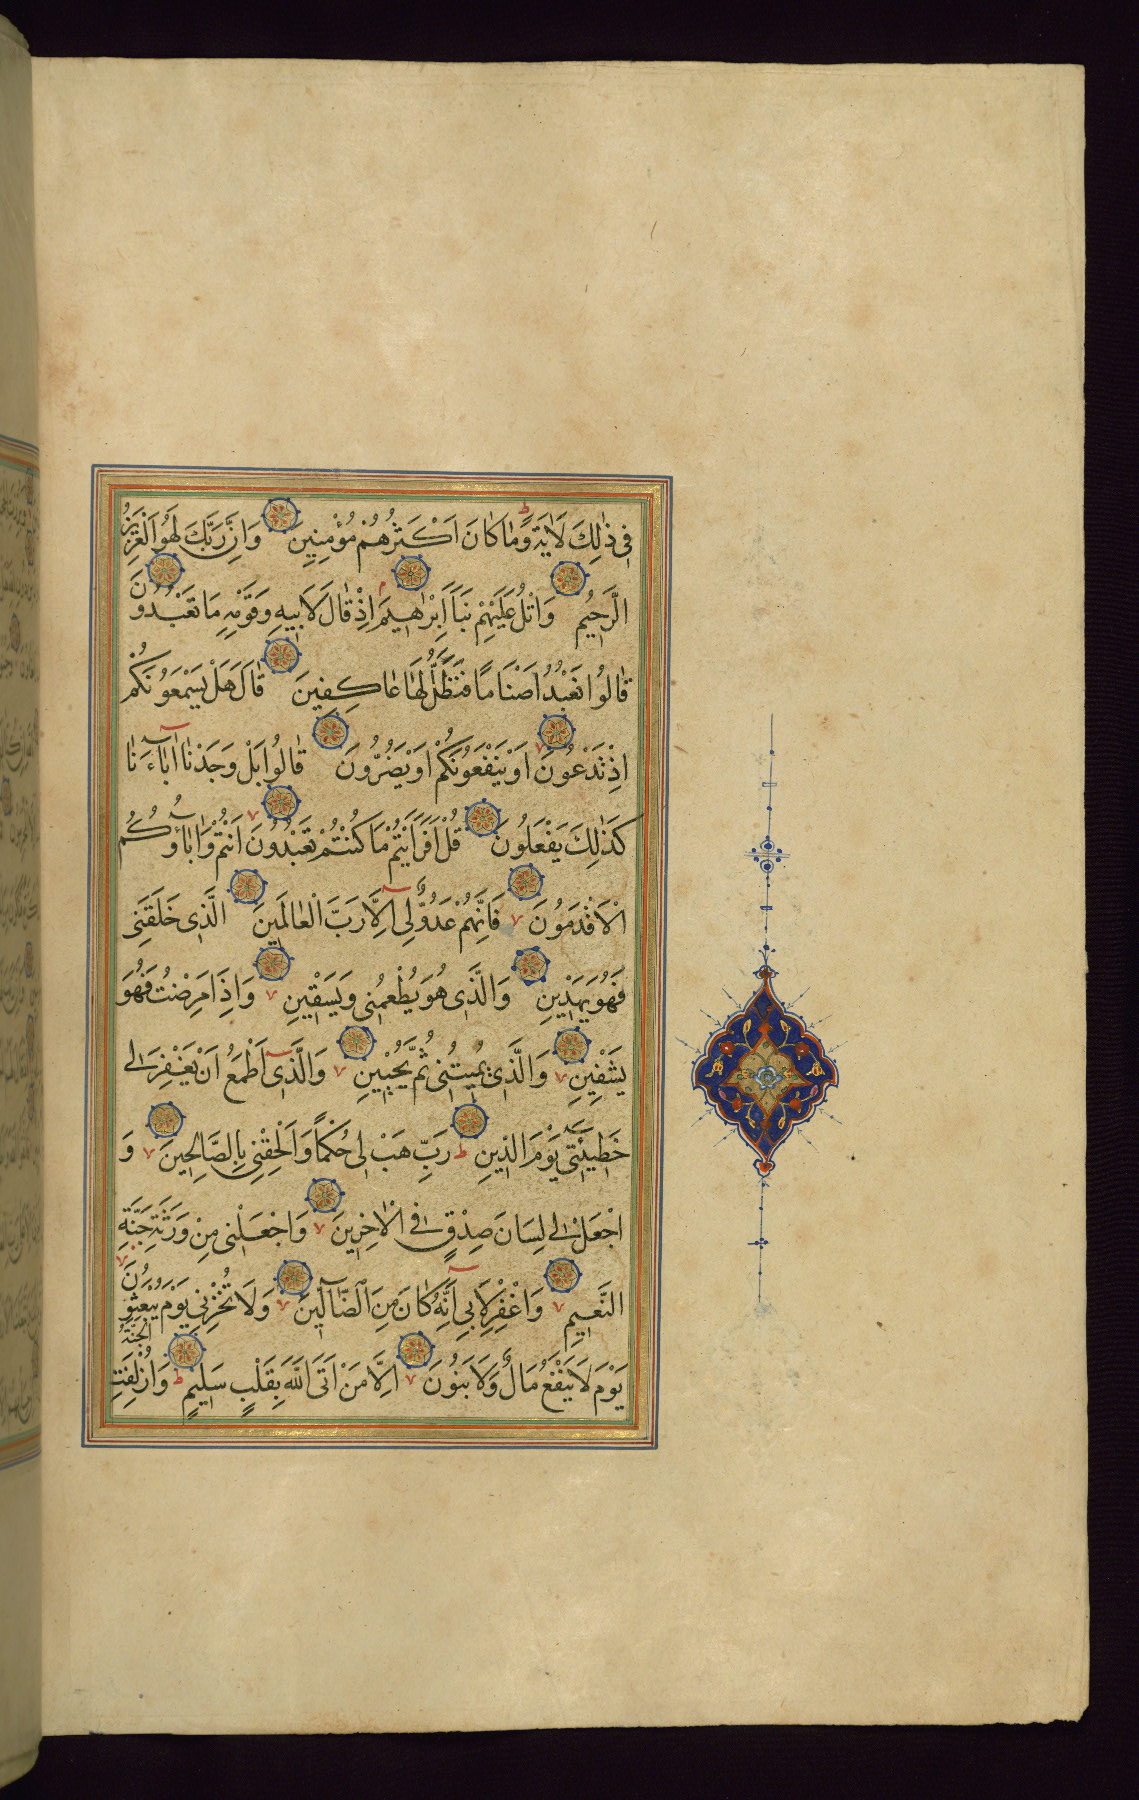 فِى ذٰلِكَ لَاٰيَةً وَمَا كَانَ اَكْثَرُهُمْ مُؤْمِنِينَ وَاِنَّ رَبَّكَ لَهُوَ الْعَزِيزُ
الرَّحِيمُ وَاتْلُ عَلَيْهِمْ نَبَاَ اِبْرٰهِيمَ اِذْ قَالَ لِاَبِيهِ وَقَوْمِهِ مَا تَعْبُدُونَ
قَالُوا نَعْبُدُ اَصْنَامًا فَنَظَلُّ لَهَا عَاكِفِينَ قَالَ هَلْ يَسْمَعُونَكُمْ
اِذْ تَدْعُونَ اَوْ يَنْفَعُونَكُمْ اَوْ يَضُرُّونَ قَالُوا بَلْ وَجَدْنَا اٰبَاءَنَا
كَذٰلِكَ يَفْعَلُونَ قُلْ اَفَرَاَيْتُمْ مَا كُنْتُمْ تَعْبُدُونَ اَنْتُمْ وَاٰبَاؤُكُمُ
الْاَقْدَمُونَ فَاِنَّهُمْ عَدُوٌّ لِى اِلَّا رَبَّ الْعَالَمِينَ الَّذِى خَلَقَنِى
فَهُوَ يَهْدِينِ وَالَّذِى هُوَ يُطْعِمُنِى وَيَسْقِينِ وَاِذَا مَرِضْتُ فَهُوَ
يَشْفِينِ وَالَّذِى يُمِيتُنِى ثُمَّ يُحْيِينِ وَالَّذِى اَطْمَعُ اَنْ يَغْفِرَ لِى
خَطِيئَتِى يَوْمَ الدِّينِ رَبِّ هَبْ لِى حُكْمًا وَاَلْحِقْنِى بِالصَّالِحِينَ وَ
اجْعَلْ لِى لِسَانَ صِدْقٍ فِى الْاٰخِرِينَ وَاجْعَلْنِى مِنْ وَرَثَةِ جَنَّةِ
النَّعِيمِ وَاغْفِرْ لِاَبِى اِنَّهُ كَانَ مِنَ الضَّالِّينَ وَلَا تُخْزِنِى يَوْمَ يُبْعَثُونَ
يَوْمَ لَا يَنْفَعُ مَالٌ وَلَا بَنُونَ اِلَّا مَنْ اَتَى اللّٰهَ بِقَلْبٍ سَلِيمٍ وَاُزْلِفَتِ الْجَنَّةُ